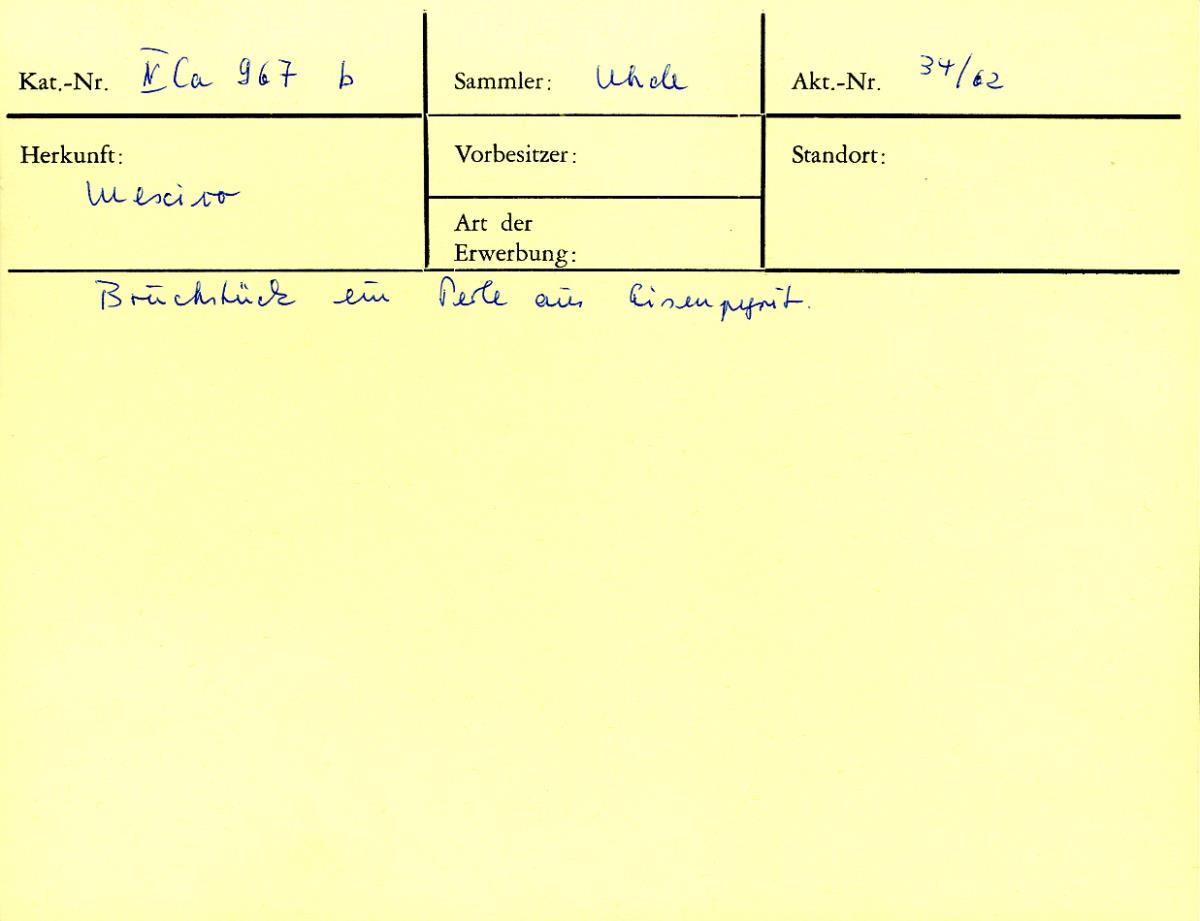 Kat.-Nr. IV Ca 967 b
Sammler: Uhde
Akt.-Nr. 34/62
Herkunft:
Mexico
Vorbesitzer:
Art der
Erwerbung:
Standort:
Bruchstück ein Perle aus Eisenpyrit.